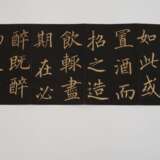 如此或
置酒而
招之造
飲輒盡
期在必
醉既醉